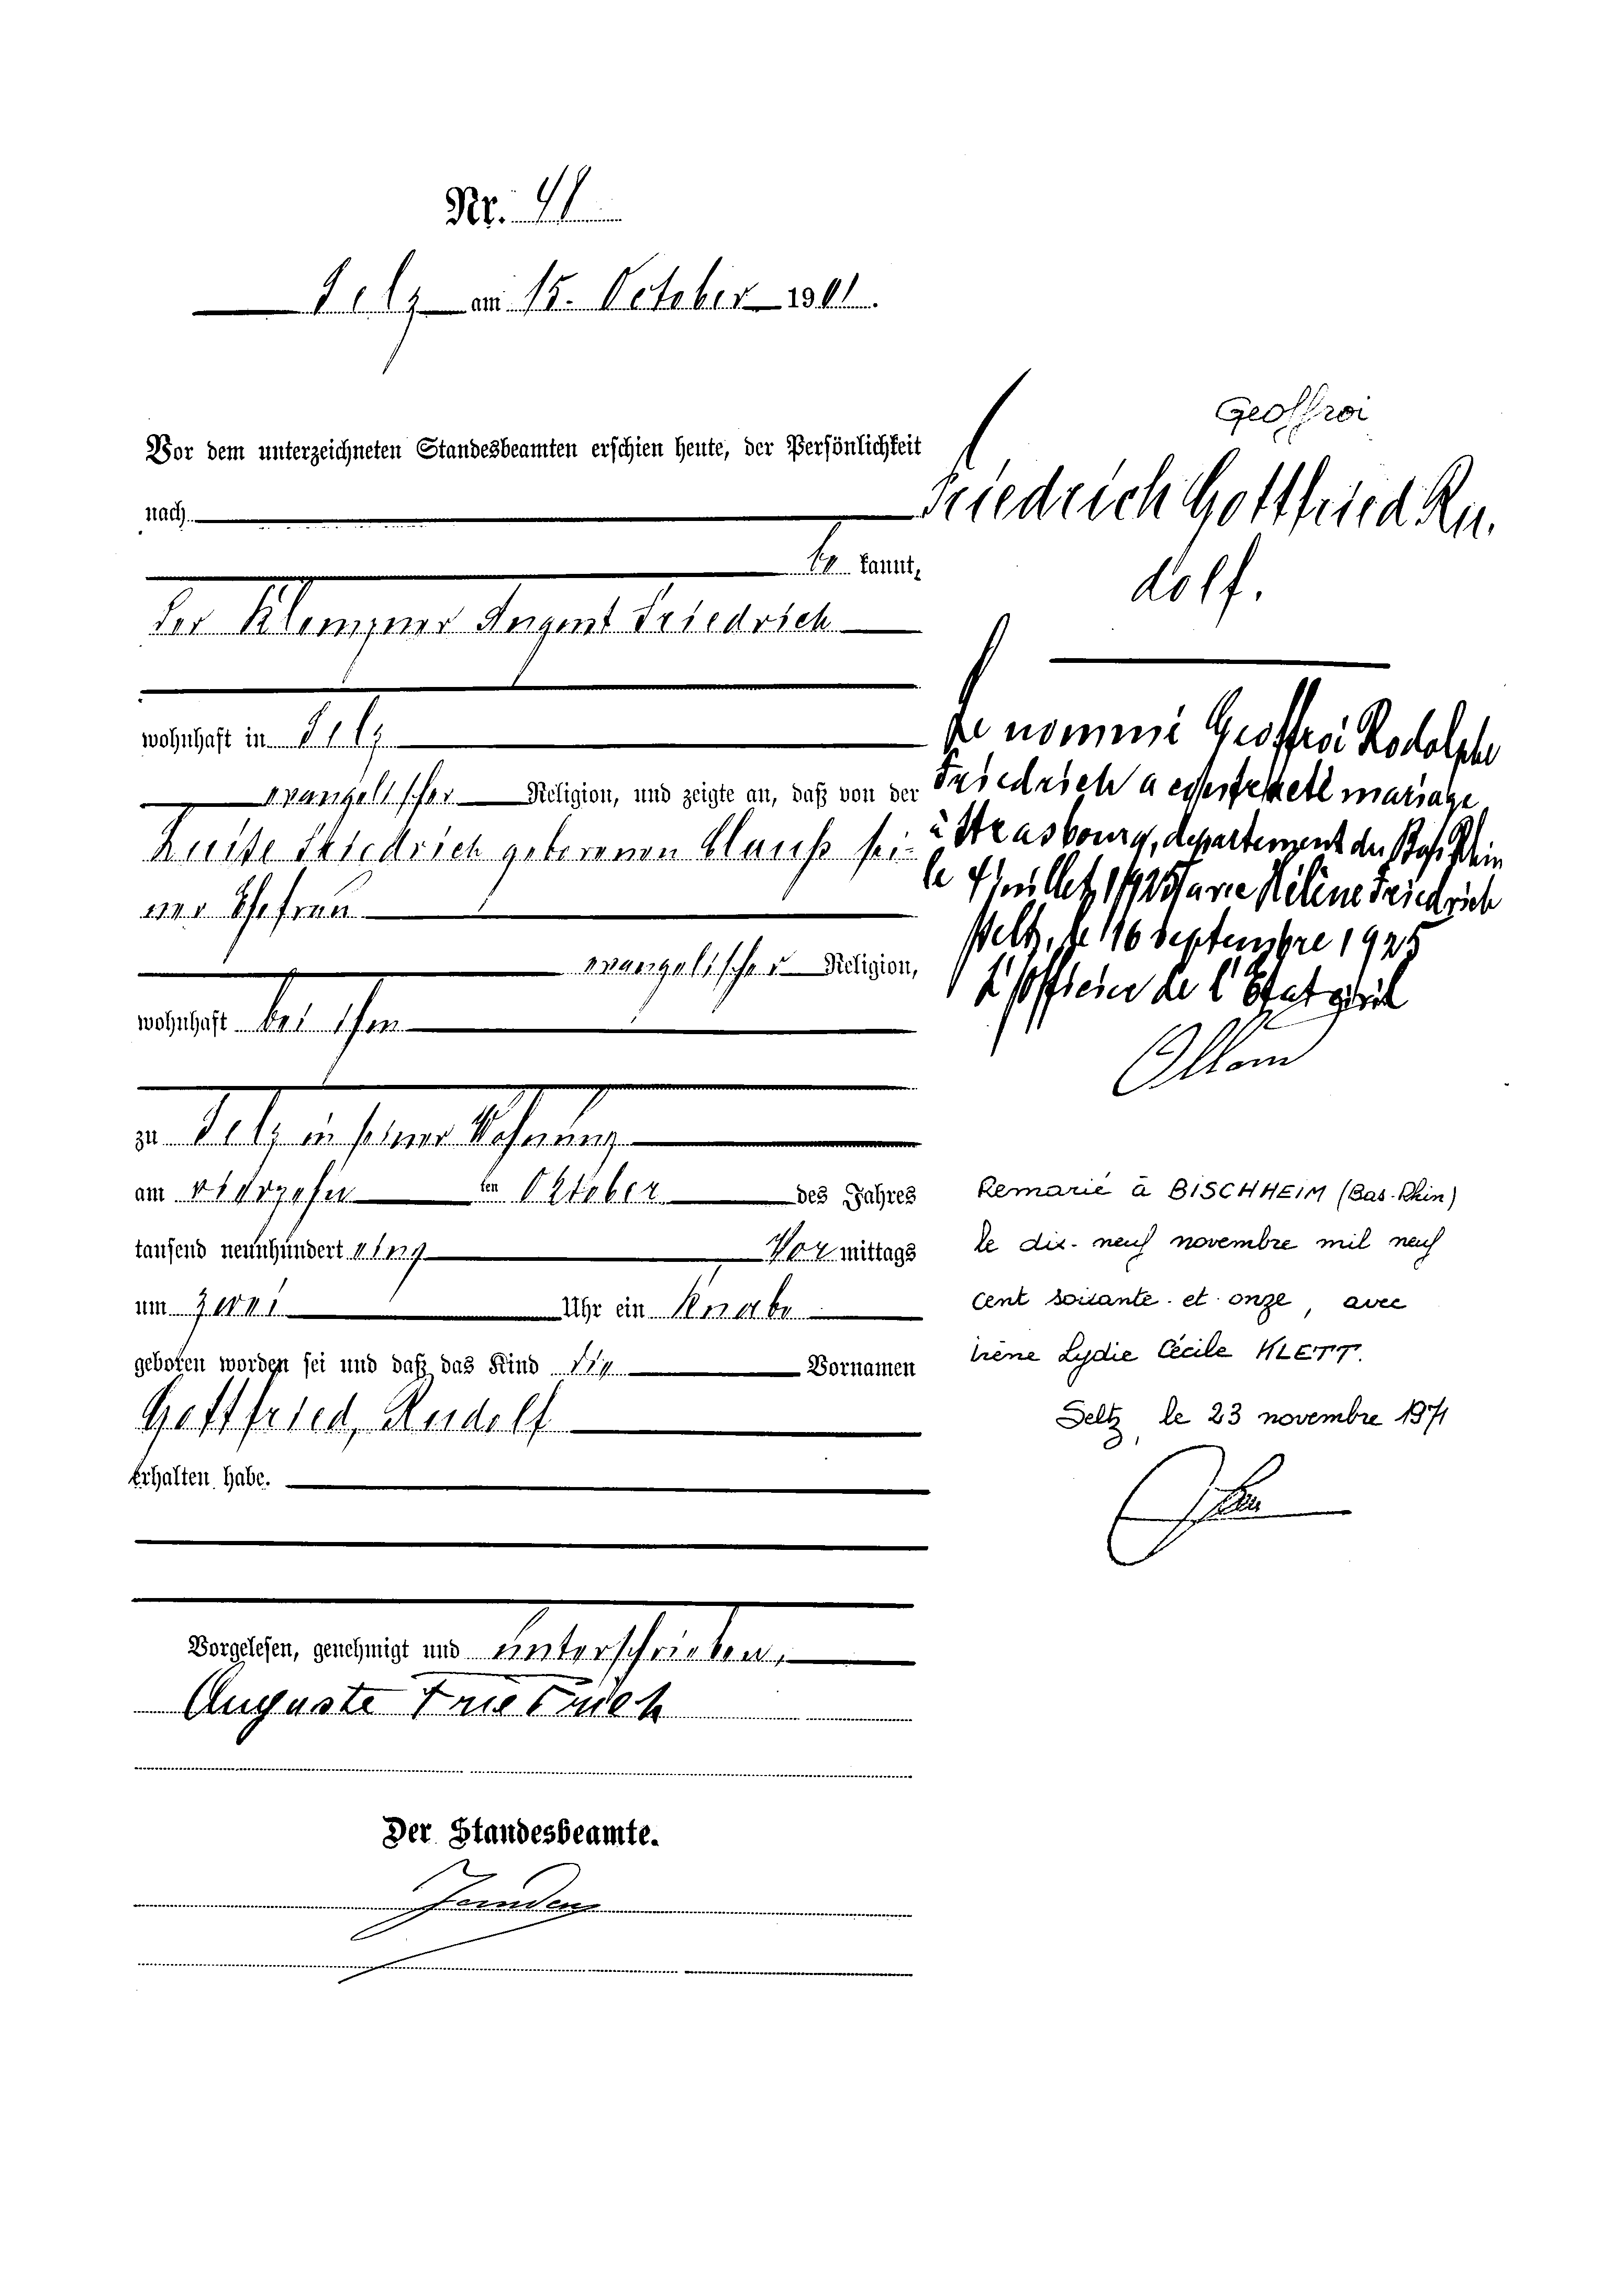 Nr. 41
Selz am 15. October 1901.
Vor dem unterzeichneten Standesbeamten erschien heute, der Persönlichkeit
nach
be kannt,
der Klempner August Friedrich
wohnhaft in Selz
evangelischer Religion, und zeigte an, daß von der
Luise Friedrich geborenen Clauß sei-
ner Ehefrau
evangelischer Religion,
wohnhaft bei ihm
zu Selz in seiner Wohnung
am vierzehn ten Oktober des Jahres
tausend neunhundert eins Vor mittags
um zwei Uhr ein Knabe
geboren worden sei und daß das Kind die Vornamen
Gottfried, Rudolf
erhalten habe.
Vorgelesen, genehmigt und unterschrieben,
Auguste Friedrich
Der Standesbeamte.
Geoffroi
Friedrich Gottfried Ru.
dolf.
Le nommé Geoffroi Rodolphe
Friedrich a contracté mariage
à Strasbourg, département du Bas Rhin
le juillet 1925 Hélène Friedrich
Seltz, le 16 septembre 1925
L'Officier de l'Etat civil
Remarié à BISCHHEIM (Bas-Rhin)
le dix-neuf novembre mil neuf
cent soixante-et-onze, avec
Irène Lydie Cécile KLETT.
Seltz, le 23 novembre 1971